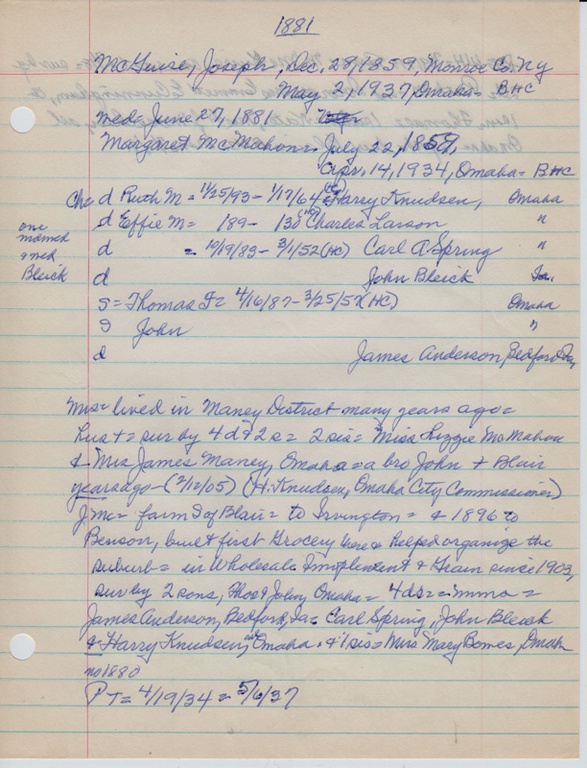 1881
McGuire, Joseph, Dec. 28, 1859, Monroe Co. Ny
May 2, 1937, Omaha = BHC
wed = June 27, 1881
Margaret McMahon = July 22, 1859,
Apr. 14, 1934, Omaha = BHC
Che d Ruth M = 11/25/93 - 1/17/64 Harry Knudsen, Omaha
d Effie M = 189 - 13 Charles Larson "
d = 10/19/83 - 3/1/52 (HC) Carl A Spring "
d John Bleick Ia.
S = Thomas F = 4/16/87 - 3/25/57 (HC) Omaha
S John "
d James Anderson, Bedford Ia,
one
married
Bleick
Mrs = lived in Maney District many years ago =
Hus + = sur by 4 d + 2 s = 2 sis = Miss Lizzie McMahon
& Mrs James Maney, Omaha = a bro John + Blair
years ago - (2/12/05) (H. Knudsen, Omaha City Commissioner)
J Mc = farm S of Blair = to Irvington = & 1896 to
Benson, built first Grocery there & helped organize the
suburb = in Wholesale Implement & Grain since 1903,
sur by 2 sons, Thos & John, Omaha = 4 ds =
James Anderson, Bedford, Ia = Carl Spring, John Bleick
& Harry Knudsen, Omaha & 1 sis = Mrs Mary Bomes, Omaha
no 1880
PT = 4/19/34 = 5/6/37